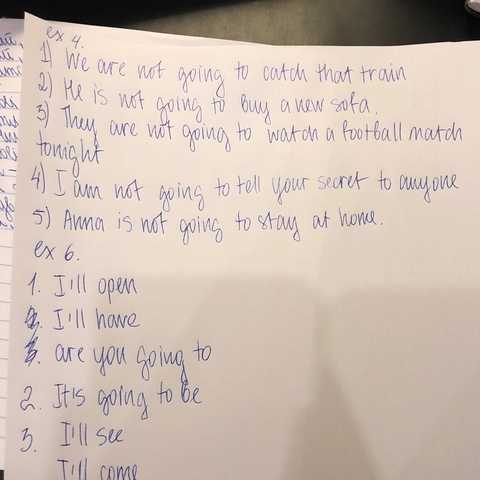 ex 4.
1) We are not going to catch that train
2) He is not going to buy a new sofa.
3) They are not going to watch a football match
tonight
4) I am not going to tell your secret to anyone
5) Anna is not going to stay at home.
ex 6.
1. I'll open
I'll have
are you going to
2. It's going to be
3. I'll see
I'll come